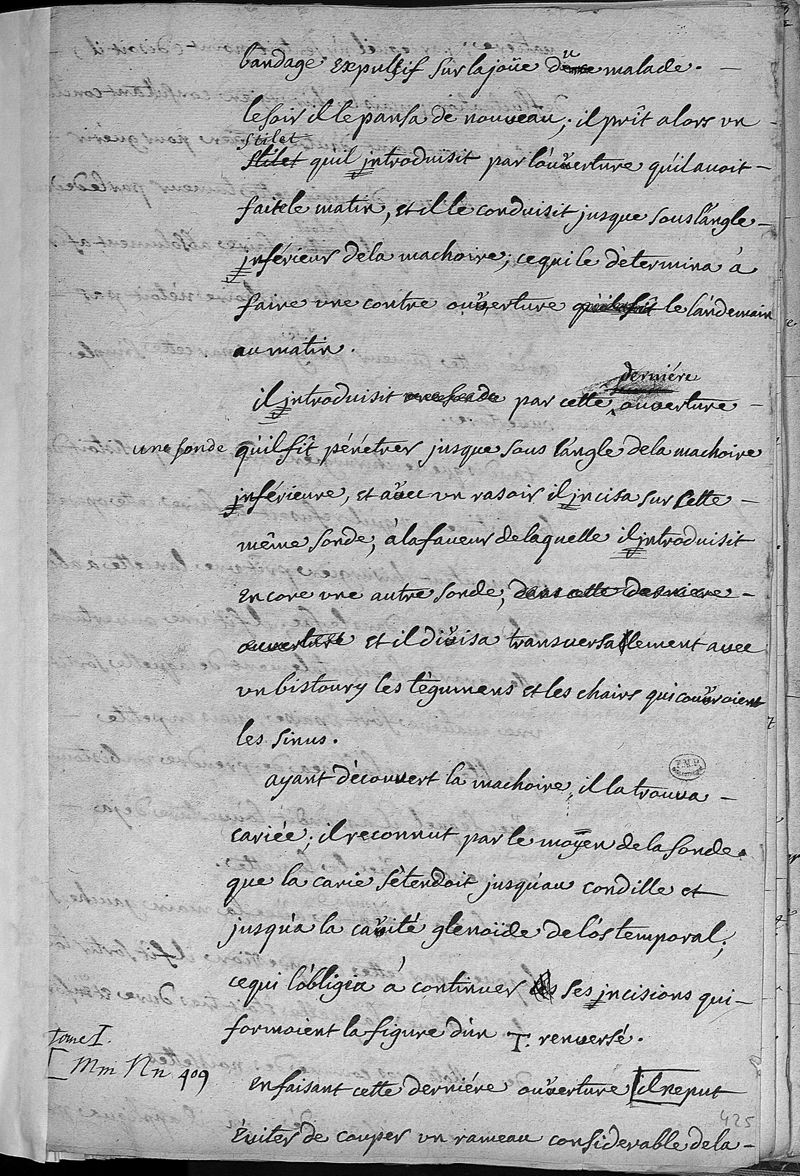 bandage expulsif sur la joüe du malade. —
le soir il le pansa de nouveau; il prit alors un
stilet
stilet qu'il introduisit par l'ouverture qu'il avoit —
faite le matin, et il le conduisit jusque sous l'angle —
inférieur de la machoire; ce qui le détermina à
faire une contre ouverture qu'il fit le landemain
au matin.
derniére
il introduisit une sonde par cette ouverture —
une sonde qu'il fit pénétrer jusque sous l'angle de la machoire
inférieure, et avec un rasoir il incisa sur cette —
même sonde, à la faveur de laquelle il introduisit
encore une autre sonde, dans cette derniere —
ouverture et il divisa transversallement avec
un bistoury les tégumens et les chairs qui couvroient
les sinus.
ayant découvert la machoire, il la trouva —
cariée; il reconnut par le moyen de la sonde
que la carie s'étendoit jusqu'au condille et
jusqu'a la cavité glenoïde de l'os temporal;
ce qui l'obligea à continuer ses incisions qui —
formoient la figure d'un T. renversé.
tome I.
[ Mm Nn 409
en faisant cette derniére ouverture [il ne put
425
éviter de couper un rameau considerable de la —